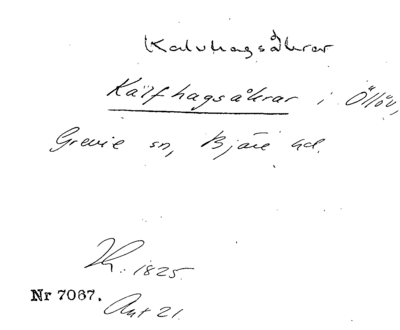 Kalvhagsåkrar
Kalfhagsåkrar i Öllöv,
Grevie sn, Bjäre hd.
1825.
Nr 7067.
Akt 21.